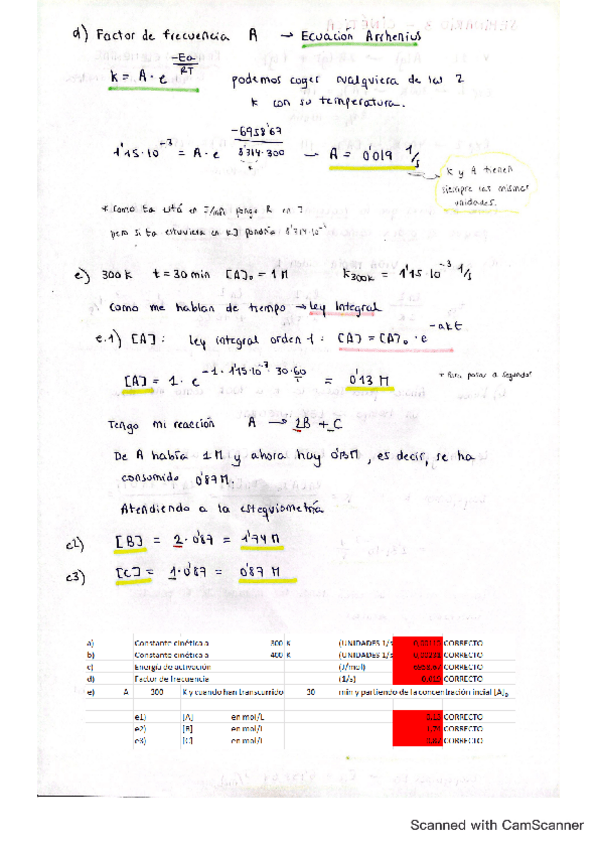 d) Factor de frecuencia A → Ecuación Arrhenius
k = A · e^(-Ea/RT) podemos coger cualquiera de las 2
k con su temperatura.
1'15·10^-3 = A · e^(-6958'67/8'314·300) → A = 0'019 1/s
k y A tienen
siempre las mismas
unidades.
* Como Ea está en J/mol pongo R en J
pero si Ea estuviera en kJ pondría 8'314·10^-3
e) 300 k t = 30 min [A]₀ = 1 M k300k = 1'15·10^-3 1/s
Como me hablan de tiempo → ley Integral
e.1) [A] : ley integral orden 1 : [A] = [A]₀ · e^-akt
[A] = 1 · e^(-1·1'15·10^-3·30·60) = 0'13 M * Para pasar a segundos
Tengo mi reacción A → 2B + C
De A había 1M y ahora hay 0'13M, es decir, se ha
consumido 0'87M.
Atendiendo a la estequiometría
e2) [B] = 2·0'87 = 1'74 M
e3) [C] = 1·0'87 = 0'87 M
a) Constante cinética a 300 K (UNIDADES 1/s 0,00115 CORRECTO
b) Constante cinética a 400 K (UNIDADES 1/s 0,00231 CORRECTO
c) Energía de activación (J/mol) 6958,67 CORRECTO
d) Factor de frecuencia (1/s) 0,019 CORRECTO
e) A 300 K y cuando han transcurrido 30 min y partiendo de la concentración incial [A]₀
e1) [A] en mol/L 0,13 CORRECTO
e2) [B] en mol/L 1,74 CORRECTO
e3) [C] en mol/L 0,87 CORRECTO
Scanned with CamScanner